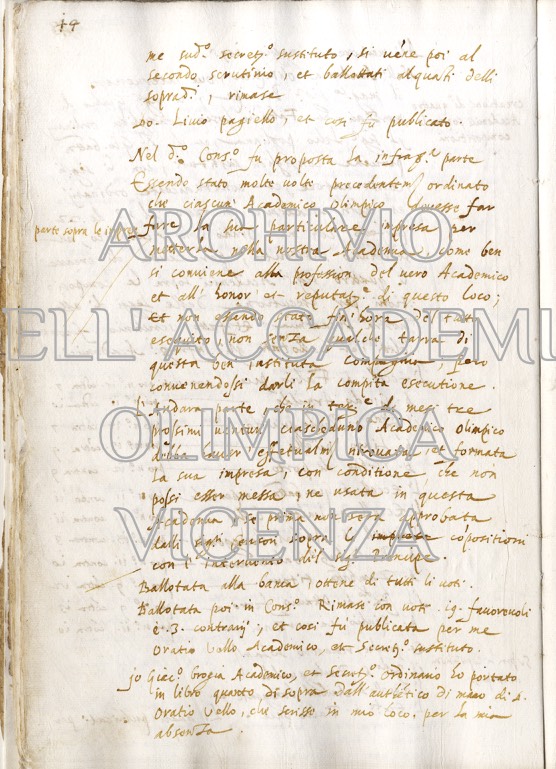 49
me sud.º secret.º sustituto, si véne poi al
secondo scrutinio, et ballottati alquãti delli
soprad.ⁱ, rimase
Do. Livio pagiello, et cosi fu publicato.
Nel d.º Cons.º fu proposta la parte
Essendo stato molte volte precedentem ordinato
che ciascun Academico olimpico dovesse far
parte sopra le imprese
fare la sua particulare impresa per
metterla nella nostra Academia come ben
si conviene alla profession del vero Academico
et all' honor et reputat.e di questo loco;
Et non essendo stato fin' hora del tutto
esequito, non senza qualche tarra di
questa ben instituta Compagnia, però
convenendosi darli la compita esecutione.
L'andara parte, che in de mesi tre
prossimi venturi ciascheduno Academico olimpico
debba haver effetualm ritrovata, et formata
la sua impresa, con conditione, che non
possi esser messa, ne usata in questa
Academia, se prima non sera approbata
dalli censori sopra le imprese copositioni
con l'intervento del sig. Principe.
Ballotata alla banca ottene di tutti li voti.
Ballotata poi in Cons.º Rimase con voti 19. favorevoli
è 3. contrarij; et cosi fu publicata per me
Oratio Vello Academico, et Secret.º sustituto.
jo Giac.º Academico, et Secret.º ordinario ho portato
in libro quarto di sopra dall'autetico di mano di d.
Oratio Vello, che scrisse in mio loco, per la mia
absenza.
ARCHIVIO
ELL'ACCADEMI
OLIMPICA
VICENZA